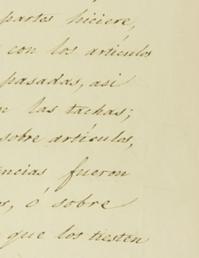 partes hiciere,
con los artículos
pasadas, asi
n las tachas;
sobre artículos,
encias fueron
os, ó sobre
que los testen